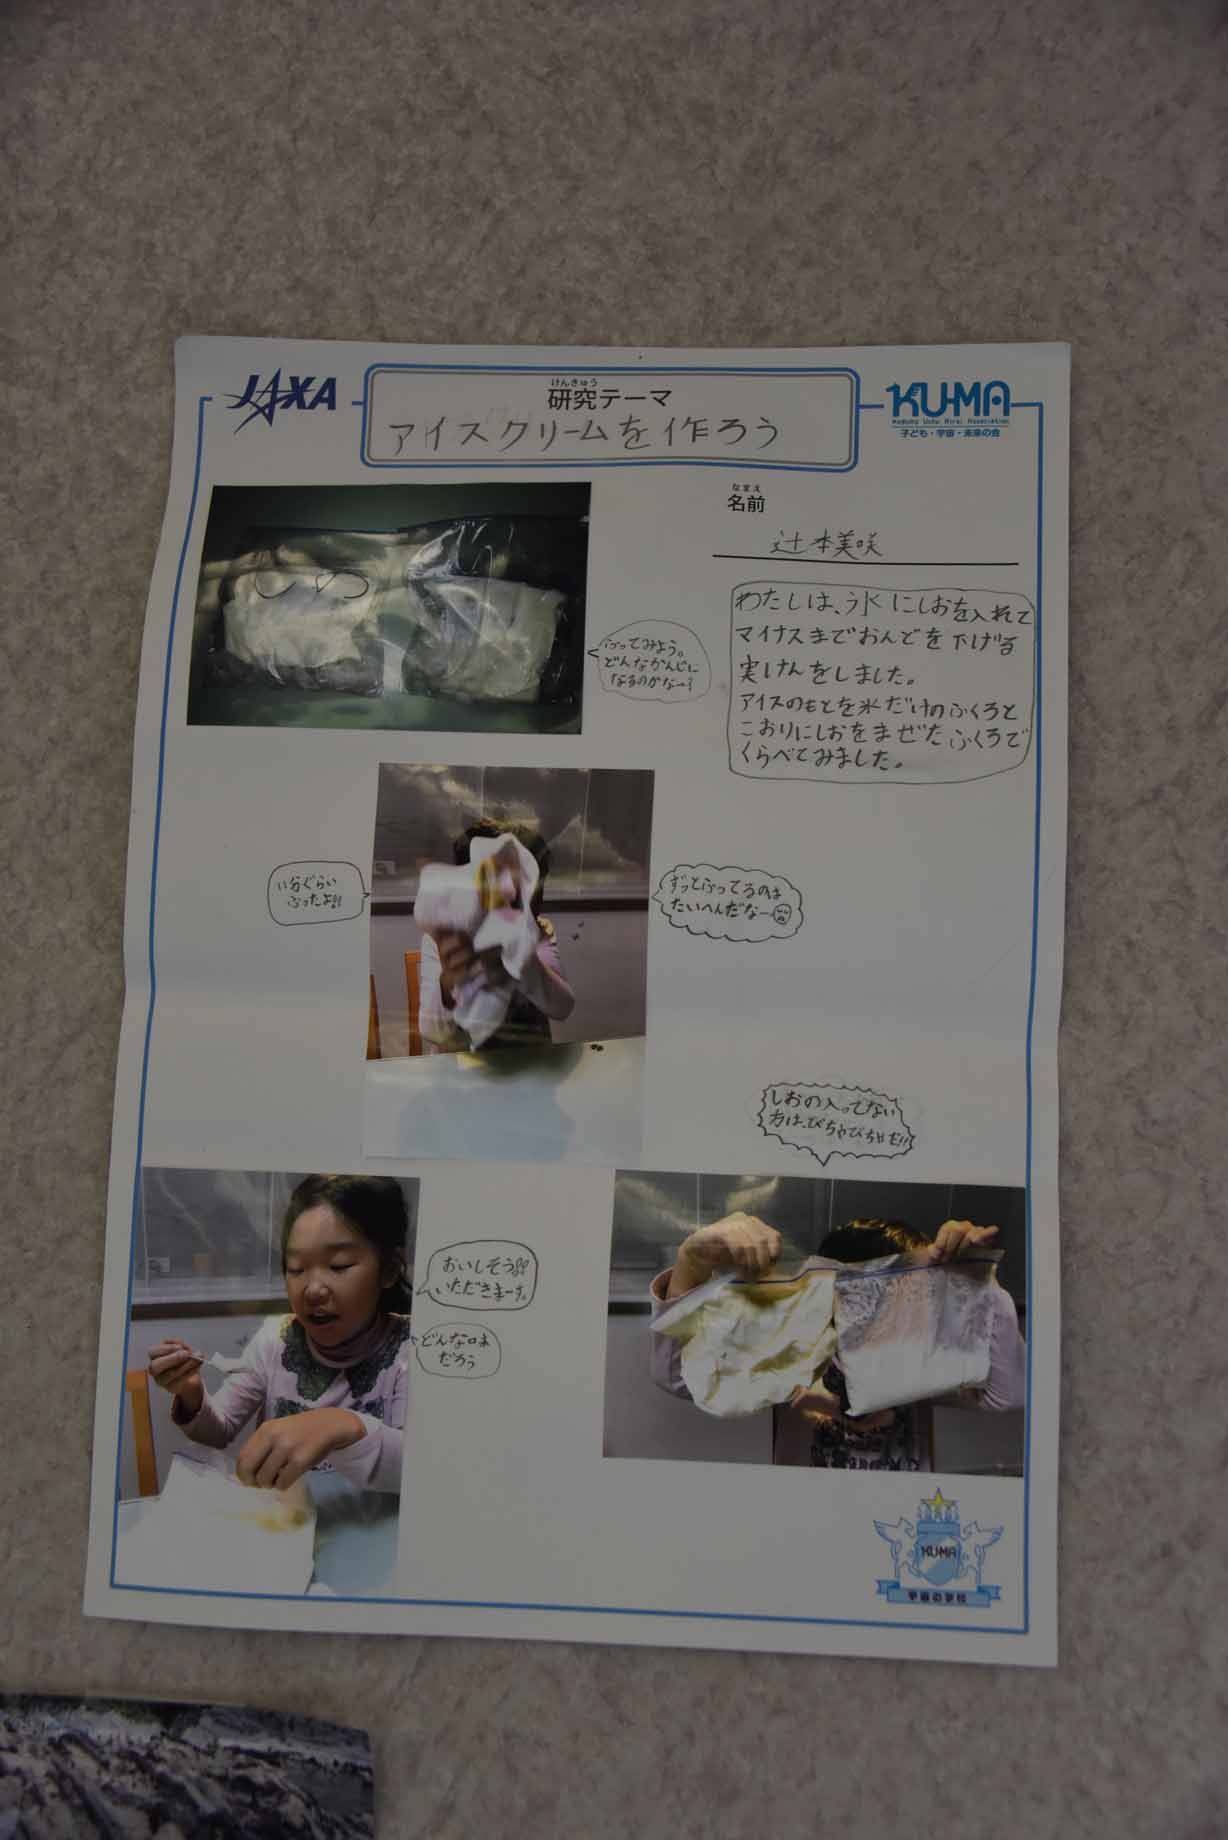 JAXA
けんきゅう
研究テーマ
アイスクリームを作ろう
KU-MA
Kodomo Uchu Mirai Association
子ども・宇宙・未来の会
なまえ
名前
辻本美咲
しめ
ふってみよう。
どんなかんじに
なるのかなー?
わたしは、氷にしおを入れて
マイナスまでおんどを下げる
実けんをしました。
アイスのもとを氷だけのふくろと
こおりにしおをまぜたふくろで
くらべてみました。
分ぐらい
ふったよ!!
ずっとふってるのは
たいへんだなー
しおの入ってない
方は、びちゃびちゃだ!!
おいしそう!!
いただきまーす。
どんな味
だろう
KU-MA
宇宙の学校